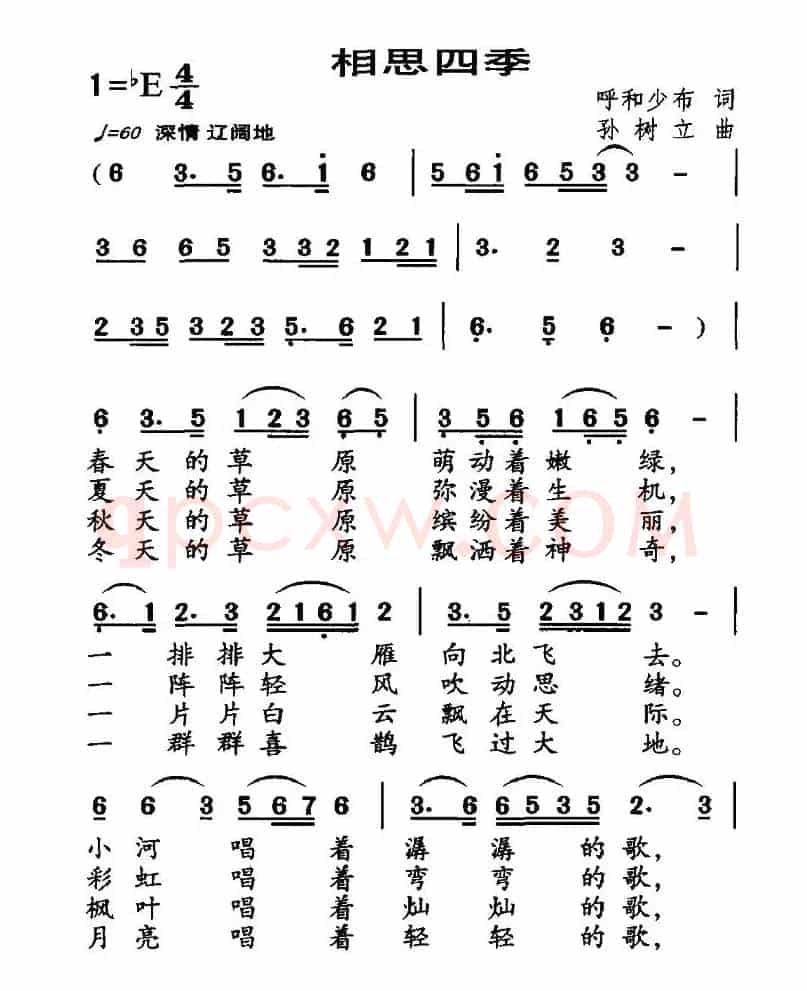 相思四季
1=♭E 4/4
呼和少布 词
♩=60 深情 辽阔地
孙树立 曲
(6 3. 5 6. i 6 | 5 6 i 6 5 3 3 - |
3 6 6 5 3 3 2 1 2 1 | 3. 2 3 - |
2 3 5 3 2 3 5. 6 2 1 | 6. 5 6 - )
6 3. 5 1 2 3 6 5 | 3 5 6 1 6 5 6 - |
春天的草原萌动着嫩绿,
夏天的草原弥漫着生机,
秋天的草原缤纷着美丽,
冬天的草原飘洒着神奇,
qpcxw.com
6. 1 2. 3 2 1 6 1 2 | 3. 5 2 3 1 2 3 - |
一排排大雁向北飞去。
一阵阵轻风吹动思绪。
一片片白云飘在天际。
一群群喜鹊飞过大地。
6 6 3 5 6 7 6 | 3. 6 6 5 3 5 2. 3 |
小河唱着潺潺的歌,
彩虹唱着弯弯的歌,
枫叶唱着灿灿的歌,
月亮唱着轻轻的歌,